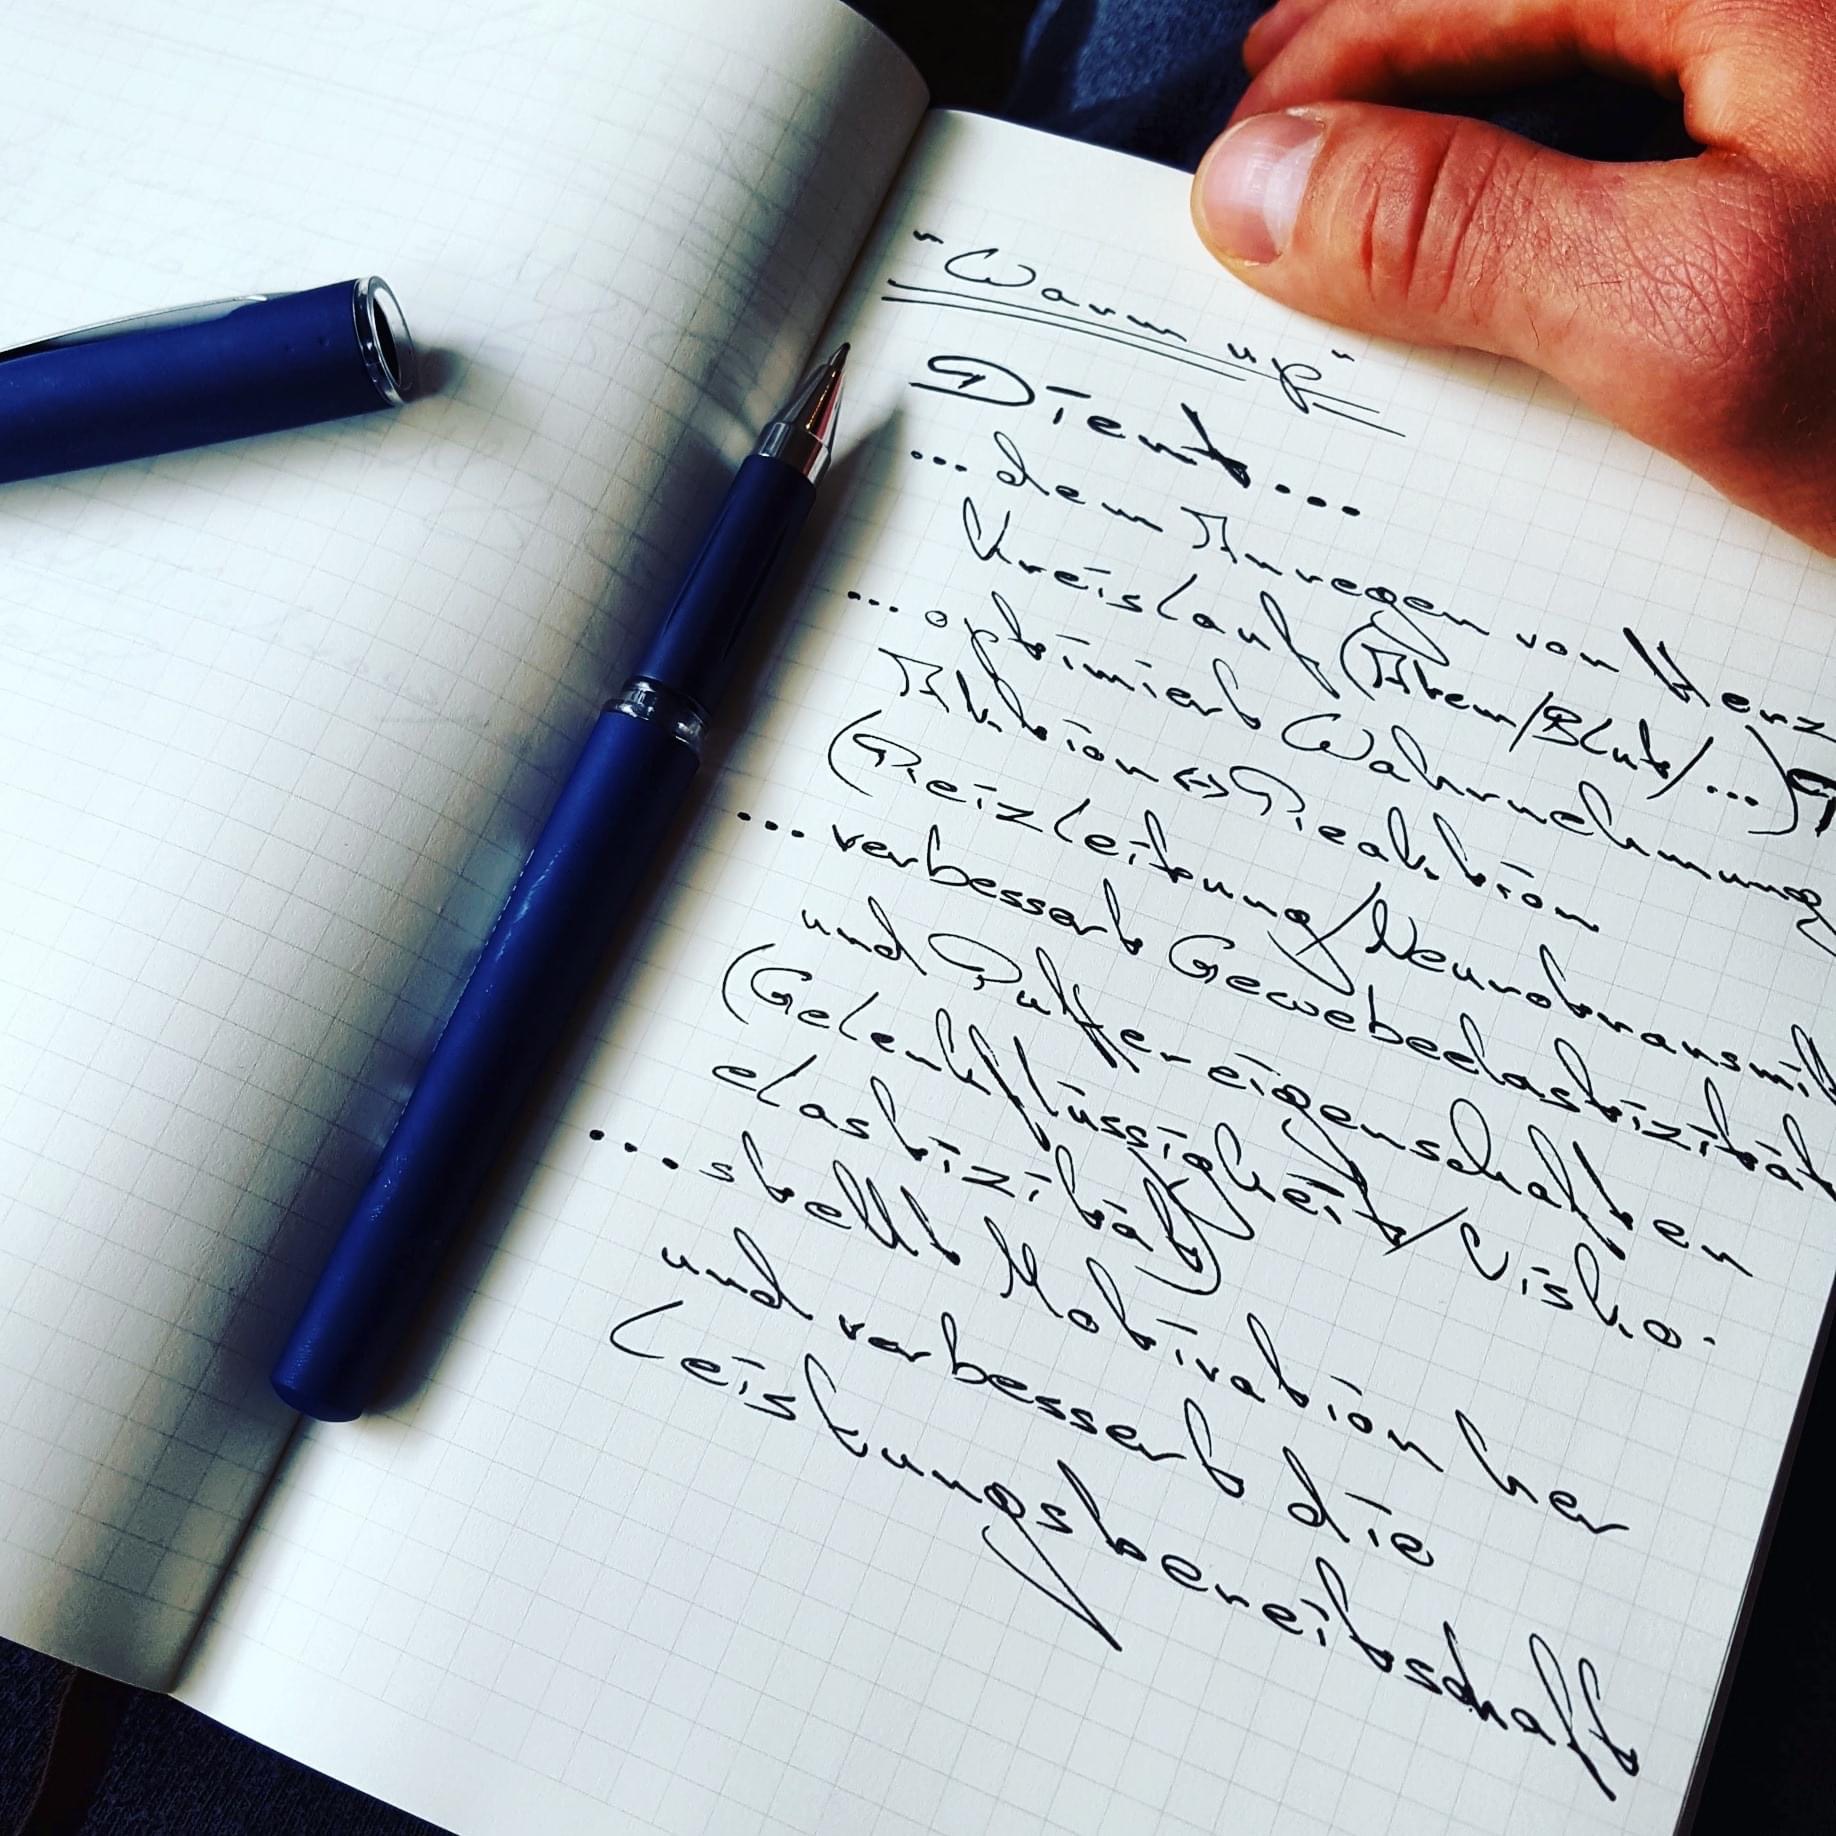 "Warm up"
Dient...
... dem Anregen von Herz
Kreislauf (Atem/Blut/...)
... optimiert Wahrnehmung
Aktion <-> Reaktion
(Reizleitung/Neurotransmit
... verbessert Gewebeelastizität
und Puffereigenschaften
(Gelenkflüssigkeit/Visko-
elastizität)
... stellt Motivation her
und verbessert die
Leistungsbereitschaft